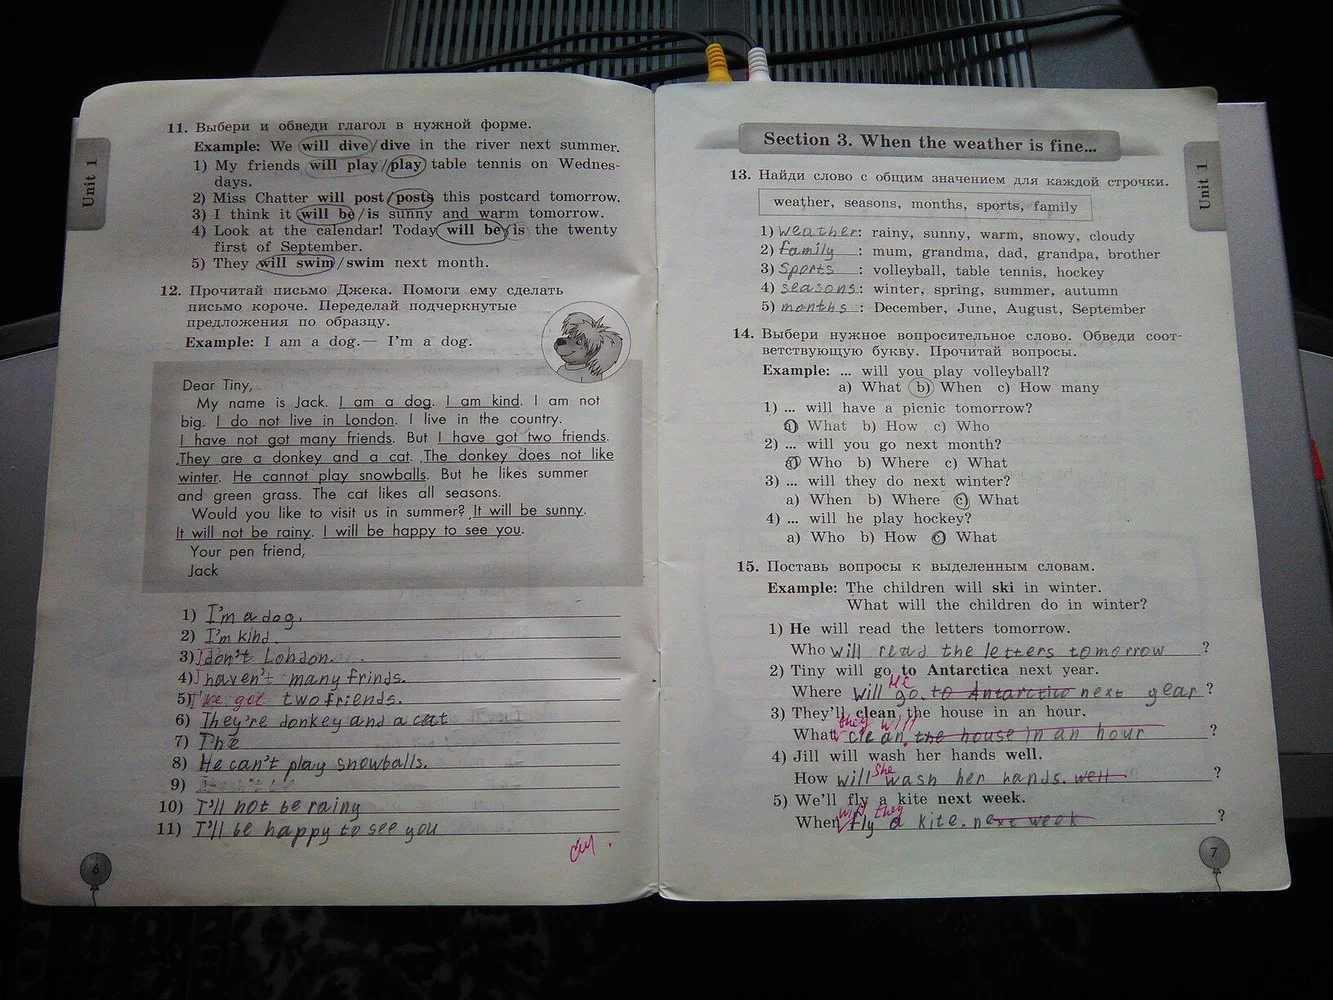 Unit 1
11. Выбери и обведи глагол в нужной форме.
Example: We will dive/dive in the river next summer.
1) My friends will play/play table tennis on Wednes-
days.
2) Miss Chatter will post/posts this postcard tomorrow.
3) I think it will be/is sunny and warm tomorrow.
4) Look at the calendar! Today will be/is the twenty
first of September.
5) They will swim/swim next month.
12. Прочитай письмо Джека. Помоги ему сделать
письмо короче. Переделай подчеркнутые
предложения по образцу.
Example: I am a dog.— I'm a dog.
Dear Tiny,
My name is Jack. I am a dog. I am kind. I am not
big. I do not live in London. I live in the country.
I have not got many friends. But I have got two friends.
They are a donkey and a cat. The donkey does not like
winter. He cannot play snowballs. But he likes summer
and green grass. The cat likes all seasons.
Would you like to visit us in summer? It will be sunny.
It will not be rainy. I will be happy to see you.
Your pen friend,
Jack
1) I'm a dog.
2) I'm kind.
3) I don't London.
4) I haven't many frinds.
5) I've got two friends.
6) They're donkey and a cat
7) The
8) He can't play snowballs.
9)
10) I'll not be rainy
11) I'll be happy to see you
6
Section 3. When the weather is fine...
Unit 1
13. Найди слово с общим значением для каждой строчки.
weather, seasons, months, sports, family
1) weather: rainy, sunny, warm, snowy, cloudy
2) family: mum, grandma, dad, grandpa, brother
3) Sports: volleyball, table tennis, hockey
4) seasons: winter, spring, summer, autumn
5) months: December, June, August, September
14. Выбери нужное вопросительное слово. Обведи соот-
ветствующую букву. Прочитай вопросы.
Example: ... will you play volleyball?
a) What b) When c) How many
1) ... will have a picnic tomorrow?
a) What b) How c) Who
2) ... will you go next month?
a) Who b) Where c) What
3) ... will they do next winter?
a) When b) Where c) What
4) ... will he play hockey?
a) Who b) How c) What
15. Поставь вопросы к выделенным словам.
Example: The children will ski in winter.
What will the children do in winter?
1) He will read the letters tomorrow.
Who will read the letters tomorrow?
2) Tiny will go to Antarctica next year.
Where will he go to Antarctic next year?
3) They'll clean the house in an hour.
What they will clean the house in an hour?
4) Jill will wash her hands well.
How will She wash her hands. well?
5) We'll fly a kite next week.
When will they fly a kite. next week?
7